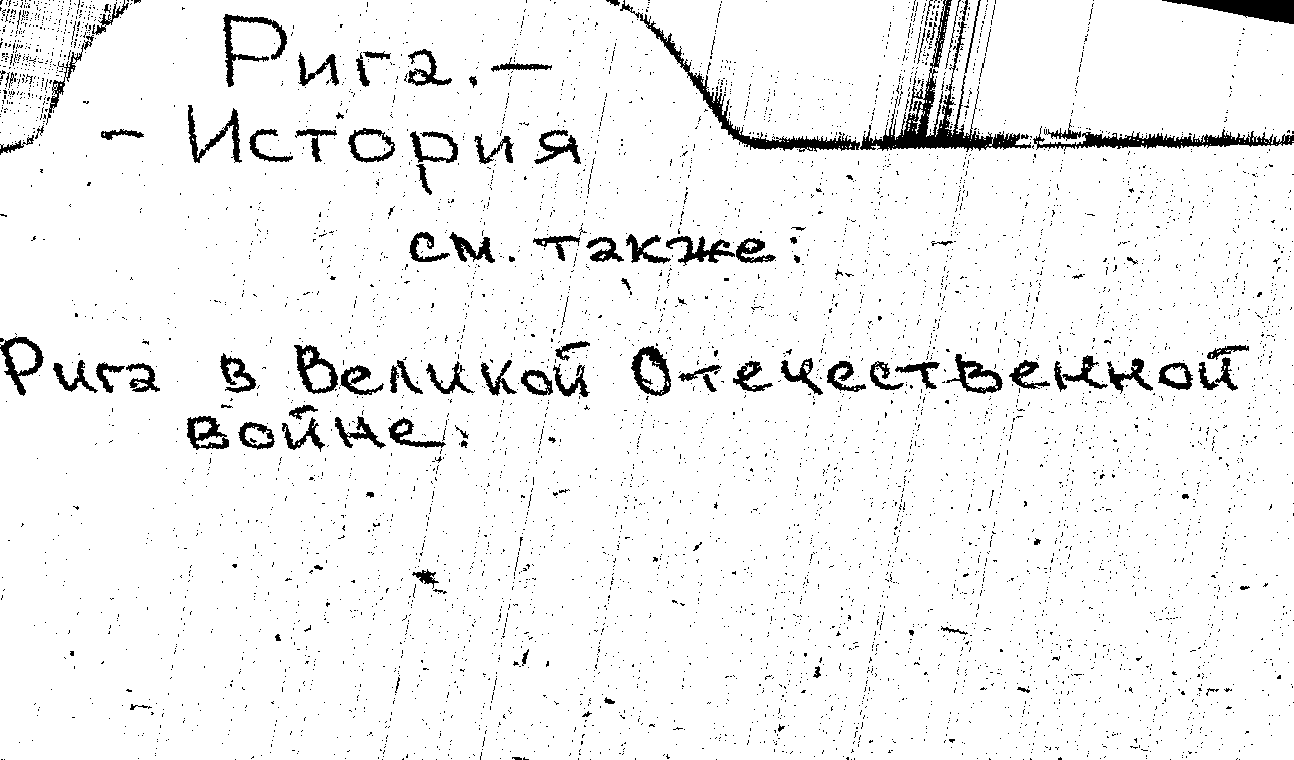 Рига.—
- История
см. также:
Рига в Великой Отечественной
войне.